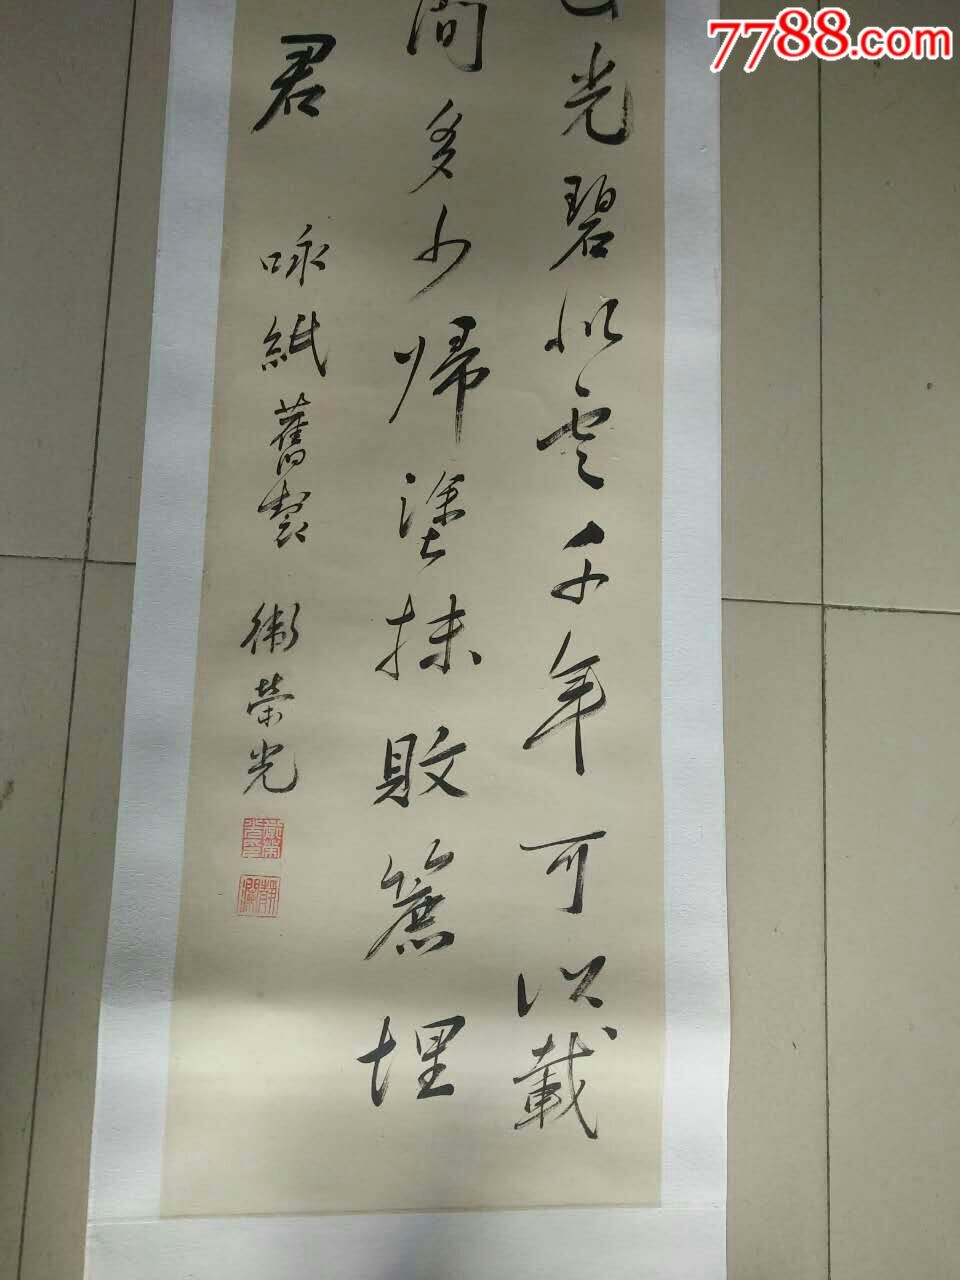 7788.com
光碧似雲千年可以載
間多少歸塗抹敗簏埋
君
咏紙舊製
衛榮光